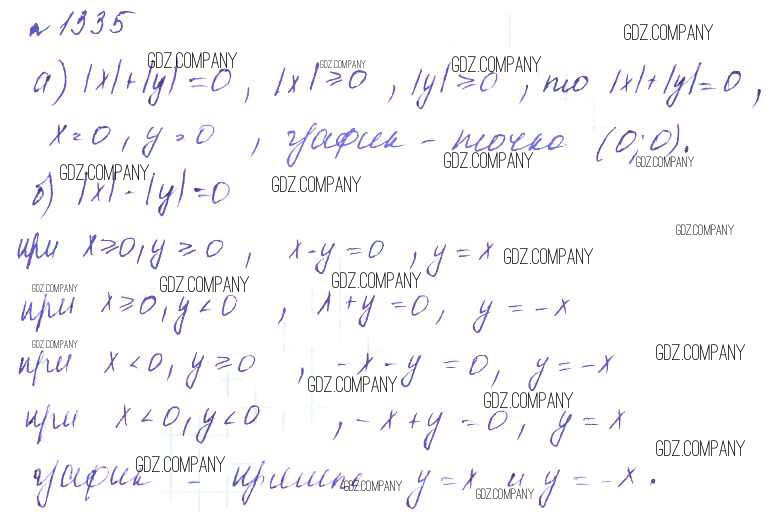 № 1335
GDZ.COMPANY
а) |x|+|y|=0, |x|≥0, |y|≥0, то |x|+|y|=0,
GDZ.COMPANY GDZ.COMPANY GDZ.COMPANY
x=0, y=0, график - точка (0;0).
GDZ.COMPANY GDZ.COMPANY
б) |x|-|y|=0
GDZ.COMPANY GDZ.COMPANY
GDZ.COMPANY
при x≥0, y≥0, x-y=0, y=x
GDZ.COMPANY
GDZ.COMPANY GDZ.COMPANY GDZ.COMPANY
при x≥0, y<0, x+y=0, y=-x
GDZ.COMPANY GDZ.COMPANY
при x<0, y≥0, -x-y=0, y=-x
GDZ.COMPANY GDZ.COMPANY
при x<0, y<0, -x+y=0, y=x
GDZ.COMPANY GDZ.COMPANY
график - прямые y=x и y=-x.
GDZ.COMPANY GDZ.COMPANY